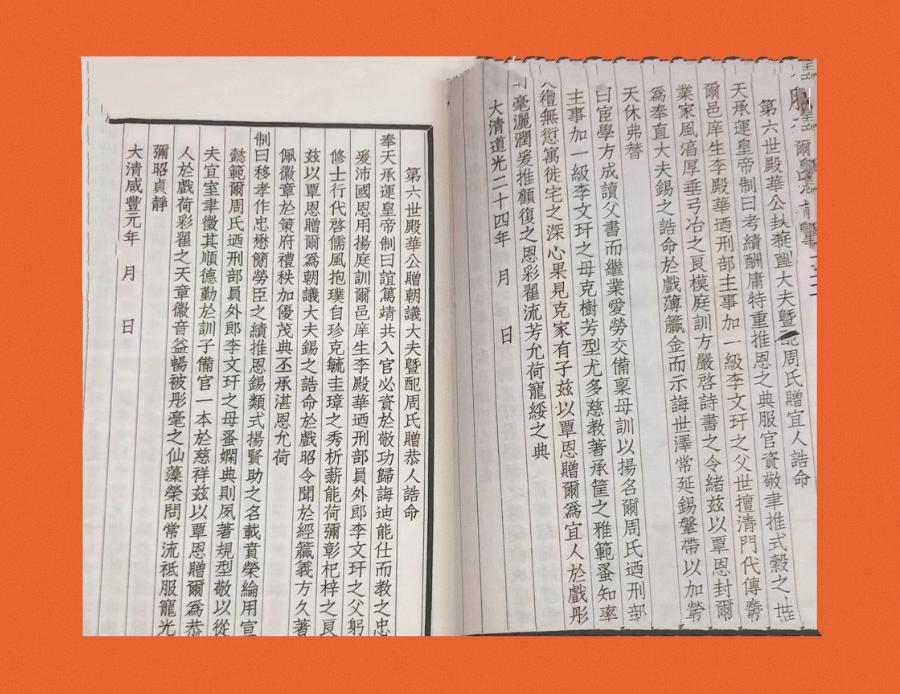 第六世殿華公封奉直大夫暨配周氏贈宜人誥命
天承運皇帝制曰考績酬庸特重推恩之典服官資敬聿推式穀之
爾邑庠生李殿華迺刑部主事加一級李文玕之父世擅清門代傳
業家風高厚垂弓冶之良模庭訓方嚴啓詩書之令緒茲以覃恩封爾
爲奉直大夫錫之誥命於戲薄籯金而示誨世澤常延錫鞶帶以加榮
天休弗替
曰宦學方成讀父書而繼業愛勞交備稟母訓以揚名爾周氏迺刑部
主事加一級李文玕之母克樹芳型尤多慈教著承筐之雅範蚤知率
禮無愆寓徙宅之深心果見克家有子茲以覃恩贈爾爲宜人於戲彤
毫灑潤爰推顧復之恩彩翟流芳允荷寵綏之典
大清道光二十四年　月　日
第六世殿華公贈朝議大夫暨配周氏贈恭人誥命
奉天承運皇帝制曰誼篤靖共入官必資於敬功歸誨迪能仕而教之忠
爰沛國恩用揚庭訓爾邑庠生李殿華迺刑部員外郎李文玕之父躬
修士行代啓儒風抱璞自珍克毓圭璋之秀析薪能荷彌彰杞梓之良
茲以覃恩贈爾爲朝議大夫錫之誥命於戲昭令聞於經籯義方久著
佩徽章於策府禮秩加優茂典丕承湛恩允荷
制曰移孝作忠懋簡勞臣之績推恩錫類式揚賢助之名載賁榮綸用宣
懿範爾周氏迺刑部員外郎李文玕之母蚤嫻典則夙著規型敬以從
夫宜室聿徵其順德勤於訓子備官一本於慈祥茲以覃恩贈爾爲恭
人於戲荷彩翟之天章徽音益暢被彤毫之仙藻榮問常流祗服寵光
彌昭貞靜
大清咸豐元年　月　日